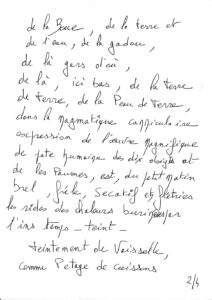 de la Boue, de la terre et
de l'eau, de la gadoue,
de là gars d'où,
de là, ici bas, de la terre
de terre, de la Peau de Terre,
dans la magmatique
expression de l'œuvre magnifique
de pate humaine des dix doigts et
de les Paumes, est, du petit matin
brel, frêle, Secatif et fletries
les rides des chaleurs burinées par
l'ins temps - teint -
teintement de Vaisselle,
comme Petage de cuissons
2/4